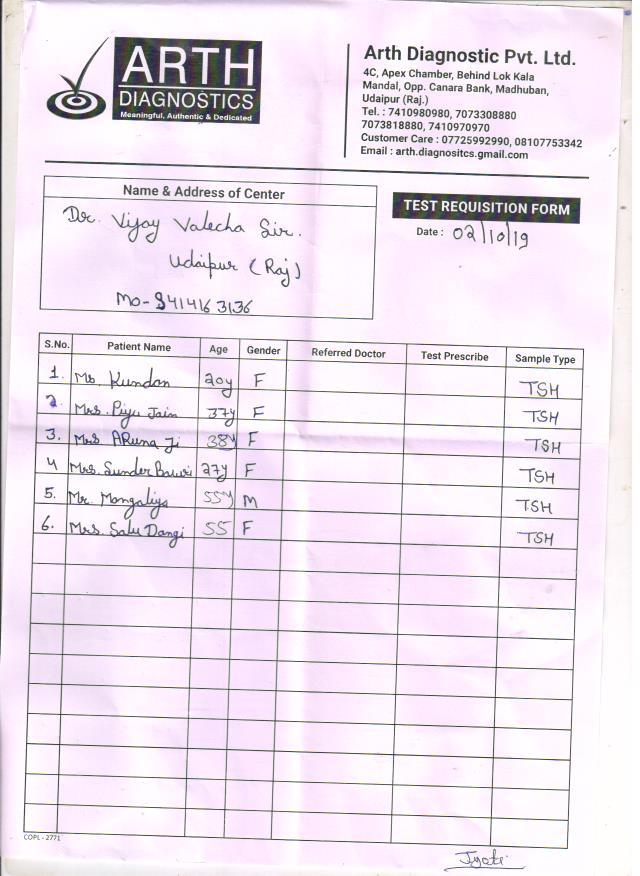 ARTH
DIAGNOSTICS
Meaningful, Authentic & Dedicated
Arth Diagnostic Pvt. Ltd.
4C, Apex Chamber, Behind Lok Kala
Mandal, Opp. Canara Bank, Madhuban,
Udaipur (Raj.)
Tel. : 7410980980, 7073308880
7073818880, 7410970970
Customer Care : 07725992990, 08107753342
Email : arth.diagnositcs.gmail.com
Name & Address of Center
Dr. Vijay Valecha Sir.
Udaipur (Raj)
Mo- 9414163136
TEST REQUISITION FORM
Date : 02/10/19
S.No. Patient Name Age Gender Referred Doctor Test Prescribe Sample Type
1. Ms. Kundan 20y F TSH
2. Mrs. Piyu Jain 37y F TSH
3. Mrs ARuna Ji 38y F TSH
4 Mrs. Sunder 27y F TSH
5. Mr. Mangaliya 55y M TSH
6. Mrs. Salu Dangi 55 F TSH
COPL - 2771
Jyoti